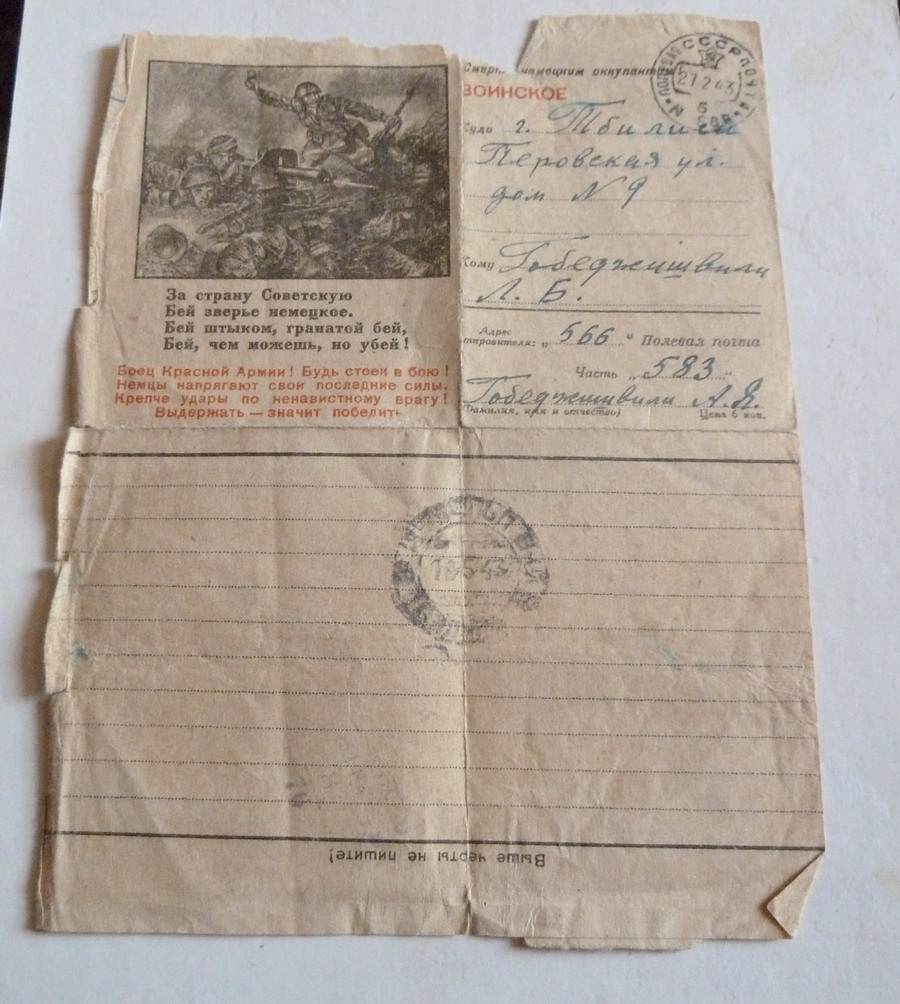 За страну Советскую
Бей зверье немецкое.
Бей штыком, гранатой бей,
Бей, чем можешь, но убей!
Боец Красной Армии! Будь стоек в бою!
Немцы напрягают свои последние силы.
Крепче удары по ненавистному врагу!
Выдержать — значит победить
немецким оккупант
ВОИНСКОЕ
СССР ПОЧТА
27 2 43
6
Куда г. Тбилиси
Перовская ул.
дом № 9
Кому Гобеджишвили
Л. Б.
Адрес
отправителя: „ 566 “ Полевая почта
Часть „ 583 “
Гобеджишвили А. Я.
(Фамилия, имя и отчество) Цена 6 коп.
Выше черты не пишите!